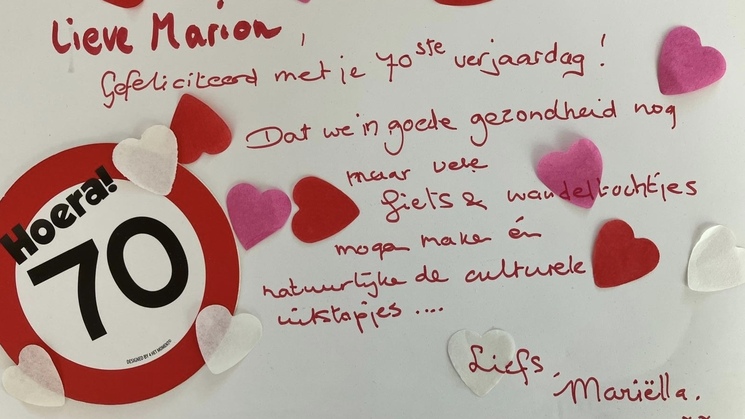 Lieve Marion,
Gefeliciteerd met je 70ste verjaardag!
Dat we in goede gezondheid nog
maar vele
fiets & wandeltochtjes
mogen maken én
natuurlijke de culturele
uitstapjes ....
Liefs,
Mariëlla.
Hoera!
70
DESIGNED BY